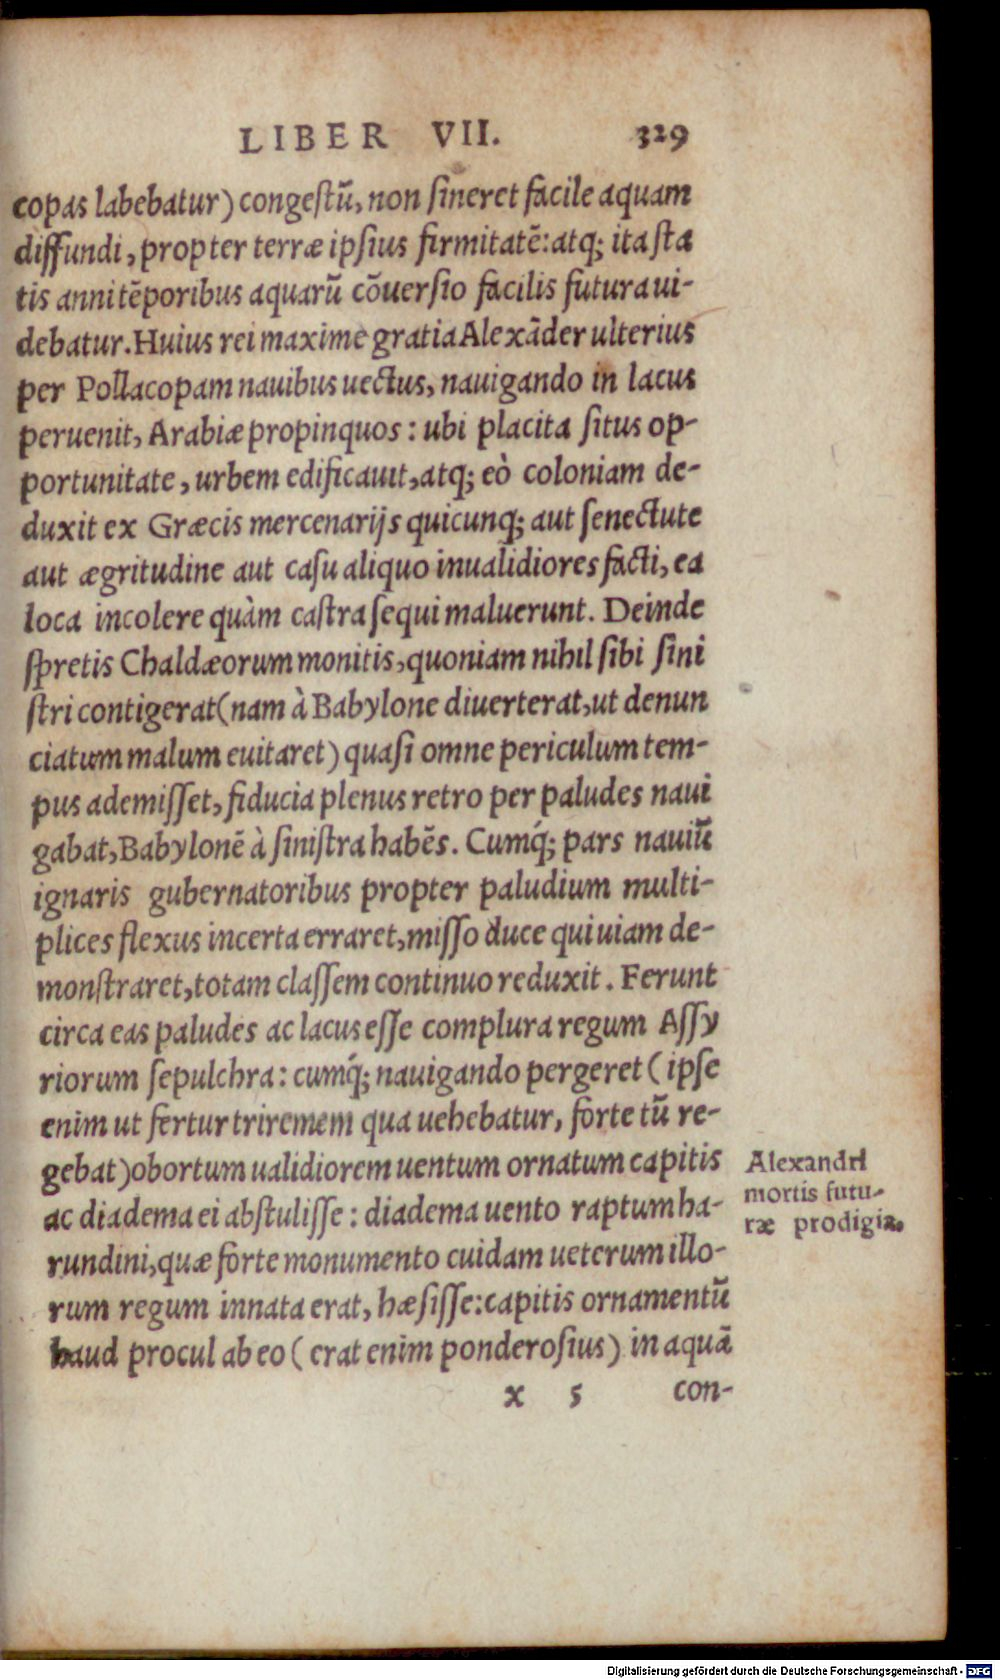 LIBER VII. 329
copas labebatur) congeſtū, non ſineret facile aquam
diffundi, propter terræ ipſius firmitatē: atq; ita ſta
tis anni tēporibus aquarū cōuerſio facilis futura ui-
debatur. Huius rei maxime gratia Alexāder ulterius
per Pollacopam nauibus uectus, nauigando in lacus
peruenit, Arabiæ propinquos: ubi placita ſitus op-
portunitate, urbem edificauit, atq; eò coloniam de-
duxit ex Græcis mercenarijs quicunq; aut ſenectute
aut ægritudine aut caſu aliquo inualidiores facti, ea
loca incolere quàm caſtra ſequi maluerunt. Deinde
ſpretis Chaldæorum monitis, quoniam nihil ſibi ſini
ſtri contigerat (nam à Babylone diuerterat, ut denun
ciatum malum euitaret) quaſi omne periculum tem-
pus ademiſſet, fiducia plenus retro per paludes naui
gabat, Babylonē à ſiniſtra habēs. Cumq́; pars nauiū
ignaris gubernatoribus propter paludium multi-
plices flexus incerta erraret, miſſo duce qui uiam de-
monſtraret, totam claſſem continuo reduxit. Ferunt
circa eas paludes ac lacus eſſe complura regum Aſſy
riorum ſepulchra: cumq́; nauigando pergeret (ipſe
enim ut fertur triremem qua uehebatur, forte tū re-
gebat) obortum ualidiorem uentum ornatum capitis
ac diadema ei abſtuliſſe: diadema uento raptum ha-
rundini, quæ forte monumento cuidam ueterum illo-
rum regum innata erat, hæſiſſe: capitis ornamentū
haud procul ab eo (erat enim ponderoſius) in aquā
x 5 con-
Alexandri
mortis futu-
ræ prodigia.
Digitalisierung gefördert durch die Deutsche Forschungsgemeinschaft - DFG